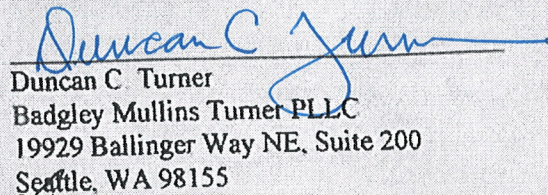 Duncan C Turn
Duncan C. Turner
Badgley Mullins Turner PLLC
19929 Ballinger Way NE, Suite 200
Seattle, WA 98155